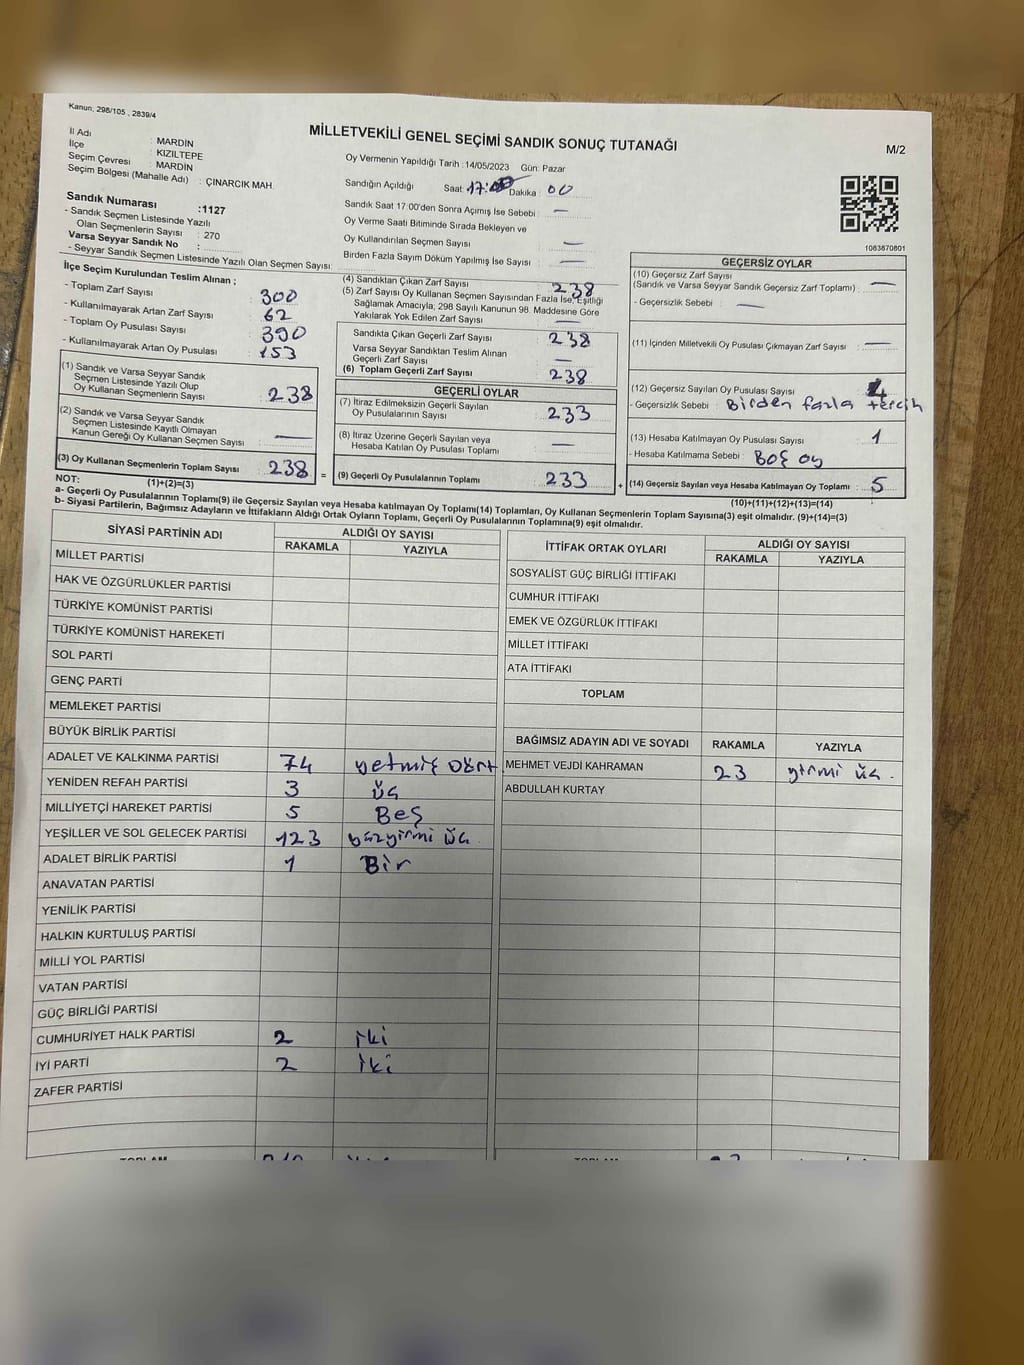 Kanun, 298/105 , 2839/4
MİLLETVEKİLİ GENEL SEÇİMİ SANDIK SONUÇ TUTANAĞI
M/2
İl Adı : MARDİN
İlçe : KIZILTEPE
Seçim Çevresi : MARDİN
Seçim Bölgesi (Mahalle Adı) : ÇINARCIK MAH.
Oy Vermenin Yapıldığı Tarih :14/05/2023 Gün: Pazar
Sandığın Açıldığı Saat: 17:00 Dakika : 00
Sandık Saat 17:00'den Sonra Açımış İse Sebebi : —
Oy Verme Saati Bitiminde Sırada Bekleyen ve
Oy Kullandırılan Seçmen Sayısı : —
Birden Fazla Sayım Döküm Yapılmış İse Sayısı : —
1063670801
Sandık Numarası :1127
- Sandık Seçmen Listesinde Yazılı
Olan Seçmenlerin Sayısı : 270
Varsa Seyyar Sandık No :
- Seyyar Sandık Seçmen Listesinde Yazılı Olan Seçmen Sayısı:
İlçe Seçim Kurulundan Teslim Alınan ;
- Toplam Zarf Sayısı : 300
- Kullanılmayarak Artan Zarf Sayısı : 62
- Toplam Oy Pusulası Sayısı : 390
- Kullanılmayarak Artan Oy Pusulası : 153
(1) Sandık ve Varsa Seyyar Sandık
Seçmen Listesinde Yazılı Olup
Oy Kullanan Seçmenlerin Sayısı : 238
(2) Sandık ve Varsa Seyyar Sandık
Seçmen Listesinde Kayıtlı Olmayan
Kanun Gereği Oy Kullanan Seçmen Sayısı : —
(3) Oy Kullanan Seçmenlerin Toplam Sayısı : 238 =
(1)+(2)=(3)
(4) Sandıktan Çıkan Zarf Sayısı : 238
(5) Zarf Sayısı Oy Kullanan Seçmen Sayısından Fazla İse, Eşitliği
Sağlamak Amacıyla, 298 Sayılı Kanunun 98. Maddesine Göre
Yakılarak Yok Edilen Zarf Sayısı : —
Sandıkta Çıkan Geçerli Zarf Sayısı : 238
Varsa Seyyar Sandıktan Teslim Alınan
Geçerli Zarf Sayısı : —
(6) Toplam Geçerli Zarf Sayısı : 238
GEÇERLİ OYLAR
(7) İtiraz Edilmeksizin Geçerli Sayılan
Oy Pusulalarının Sayısı : 233
(8) İtiraz Üzerine Geçerli Sayılan veya
Hesaba Katılan Oy Pusulası Toplamı : —
(9) Geçerli Oy Pusulalarının Toplamı : 233 +
GEÇERSİZ OYLAR
(10) Geçersiz Zarf Sayısı
(Sandık ve Varsa Seyyar Sandık Geçersiz Zarf Toplamı) : —
- Geçersizlik Sebebi : —
(11) İçinden Milletvekili Oy Pusulası Çıkmayan Zarf Sayısı : —
(12) Geçersiz Sayılan Oy Pusulası Sayısı : 4
- Geçersizlik Sebebi : Birden fazla tercih
(13) Hesaba Katılmayan Oy Pusulası Sayısı : 1
- Hesaba Katılmama Sebebi : Boş oy
(14) Geçersiz Sayılan veya Hesaba Katılmayan Oy Toplamı : 5
(10)+(11)+(12)+(13)=(14)
NOT:
a- Geçerli Oy Pusulalarının Toplamı(9) ile Geçersiz Sayılan veya Hesaba katılmayan Oy Toplamı(14) Toplamları, Oy Kullanan Seçmenlerin Toplam Sayısına(3) eşit olmalıdır. (9)+(14)=(3)
b- Siyasi Partilerin, Bağımsız Adayların ve İttifakların Aldığı Ortak Oyların Toplamı, Geçerli Oy Pusulalarının Toplamına(9) eşit olmalıdır.
SİYASİ PARTİNİN ADI ALDIĞI OY SAYISI
RAKAMLA YAZIYLA
MİLLET PARTİSİ
HAK VE ÖZGÜRLÜKLER PARTİSİ
TÜRKİYE KOMÜNİST PARTİSİ
TÜRKİYE KOMÜNİST HAREKETİ
SOL PARTİ
GENÇ PARTİ
MEMLEKET PARTİSİ
BÜYÜK BİRLİK PARTİSİ
ADALET VE KALKINMA PARTİSİ 74 yetmiş Dört
YENİDEN REFAH PARTİSİ 3 üç
MİLLİYETÇİ HAREKET PARTİSİ 5 Beş
YEŞİLLER VE SOL GELECEK PARTİSİ 123 yüzyirmi üç
ADALET BİRLİK PARTİSİ 1 Bir
ANAVATAN PARTİSİ
YENİLİK PARTİSİ
HALKIN KURTULUŞ PARTİSİ
MİLLİ YOL PARTİSİ
VATAN PARTİSİ
GÜÇ BİRLİĞİ PARTİSİ
CUMHURİYET HALK PARTİSİ 2 iki
İYİ PARTİ 2 iki
ZAFER PARTİSİ
TOPLAM
İTTİFAK ORTAK OYLARI ALDIĞI OY SAYISI
RAKAMLA YAZIYLA
SOSYALİST GÜÇ BİRLİĞİ İTTİFAKI
CUMHUR İTTİFAKI
EMEK VE ÖZGÜRLÜK İTTİFAKI
MİLLET İTTİFAKI
ATA İTTİFAKI
TOPLAM
BAĞIMSIZ ADAYIN ADI VE SOYADI RAKAMLA YAZIYLA
MEHMET VEJDİ KAHRAMAN 23 yirmi üç.
ABDULLAH KURTAY
TOPLAM